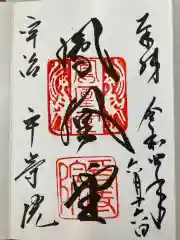 奉拝
令和四年
六月十六日
鳳凰堂
宇治
平等院